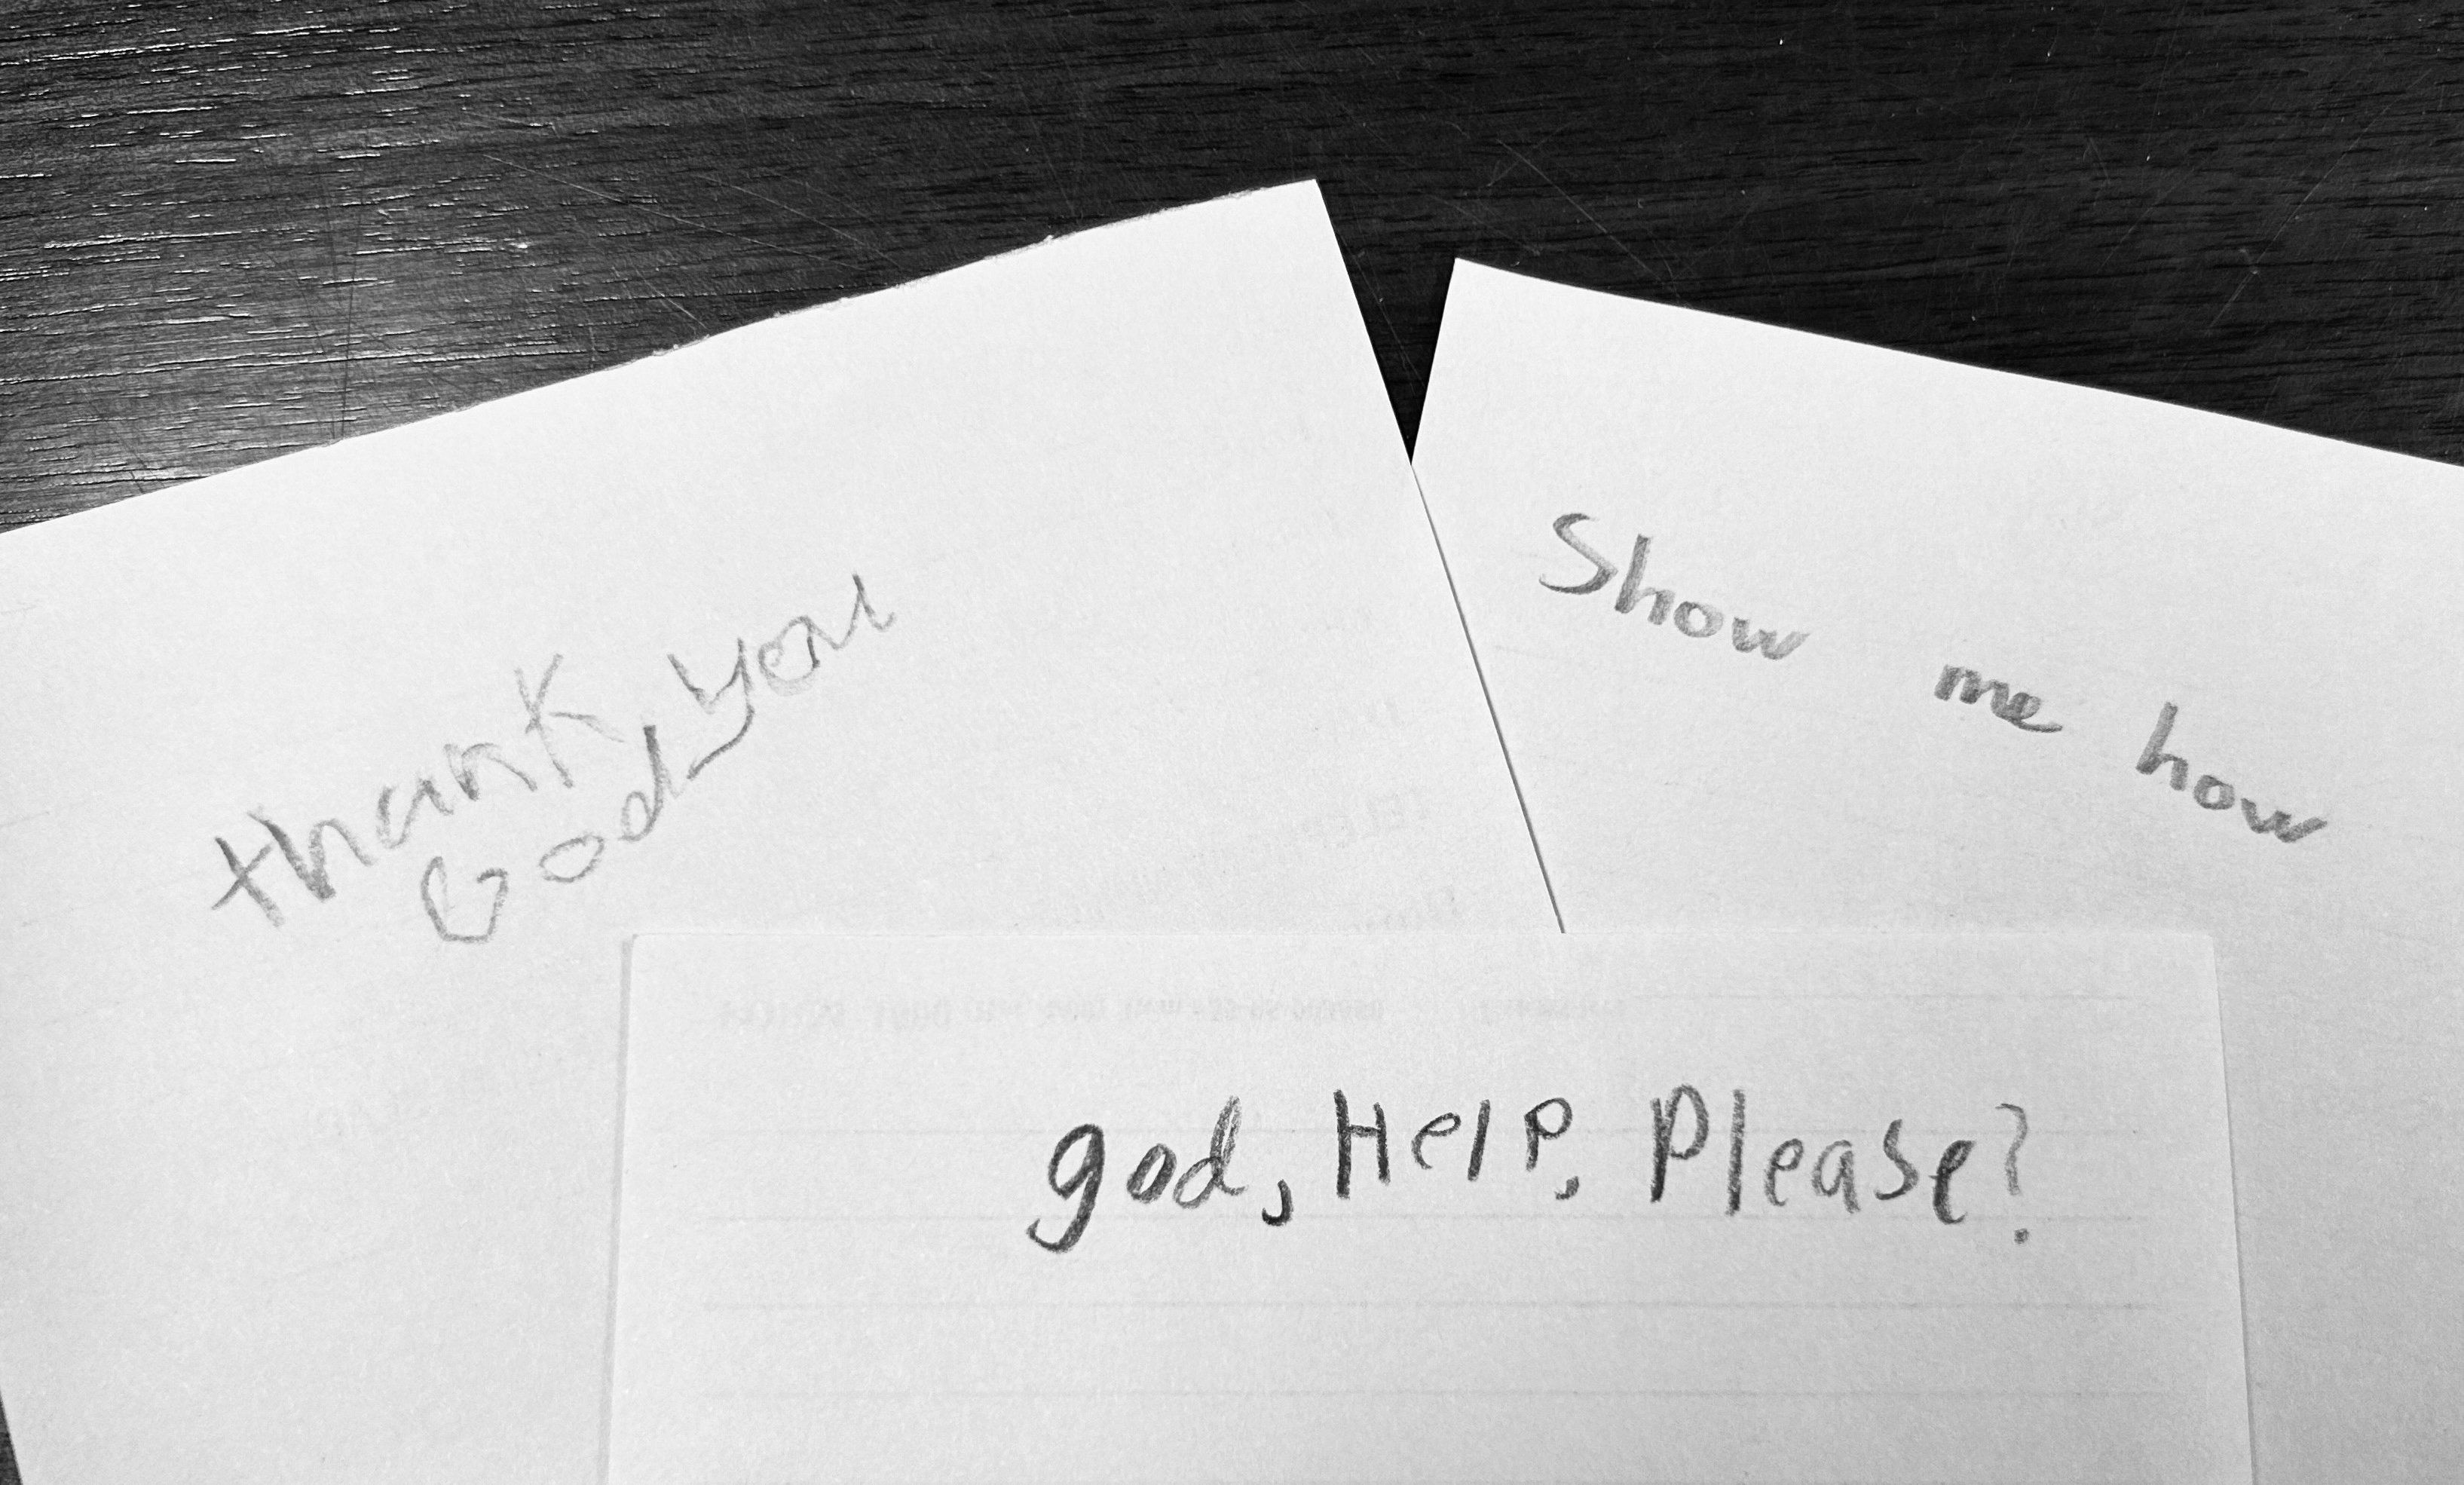 thank you
God
Show me how
god, Help, Please?